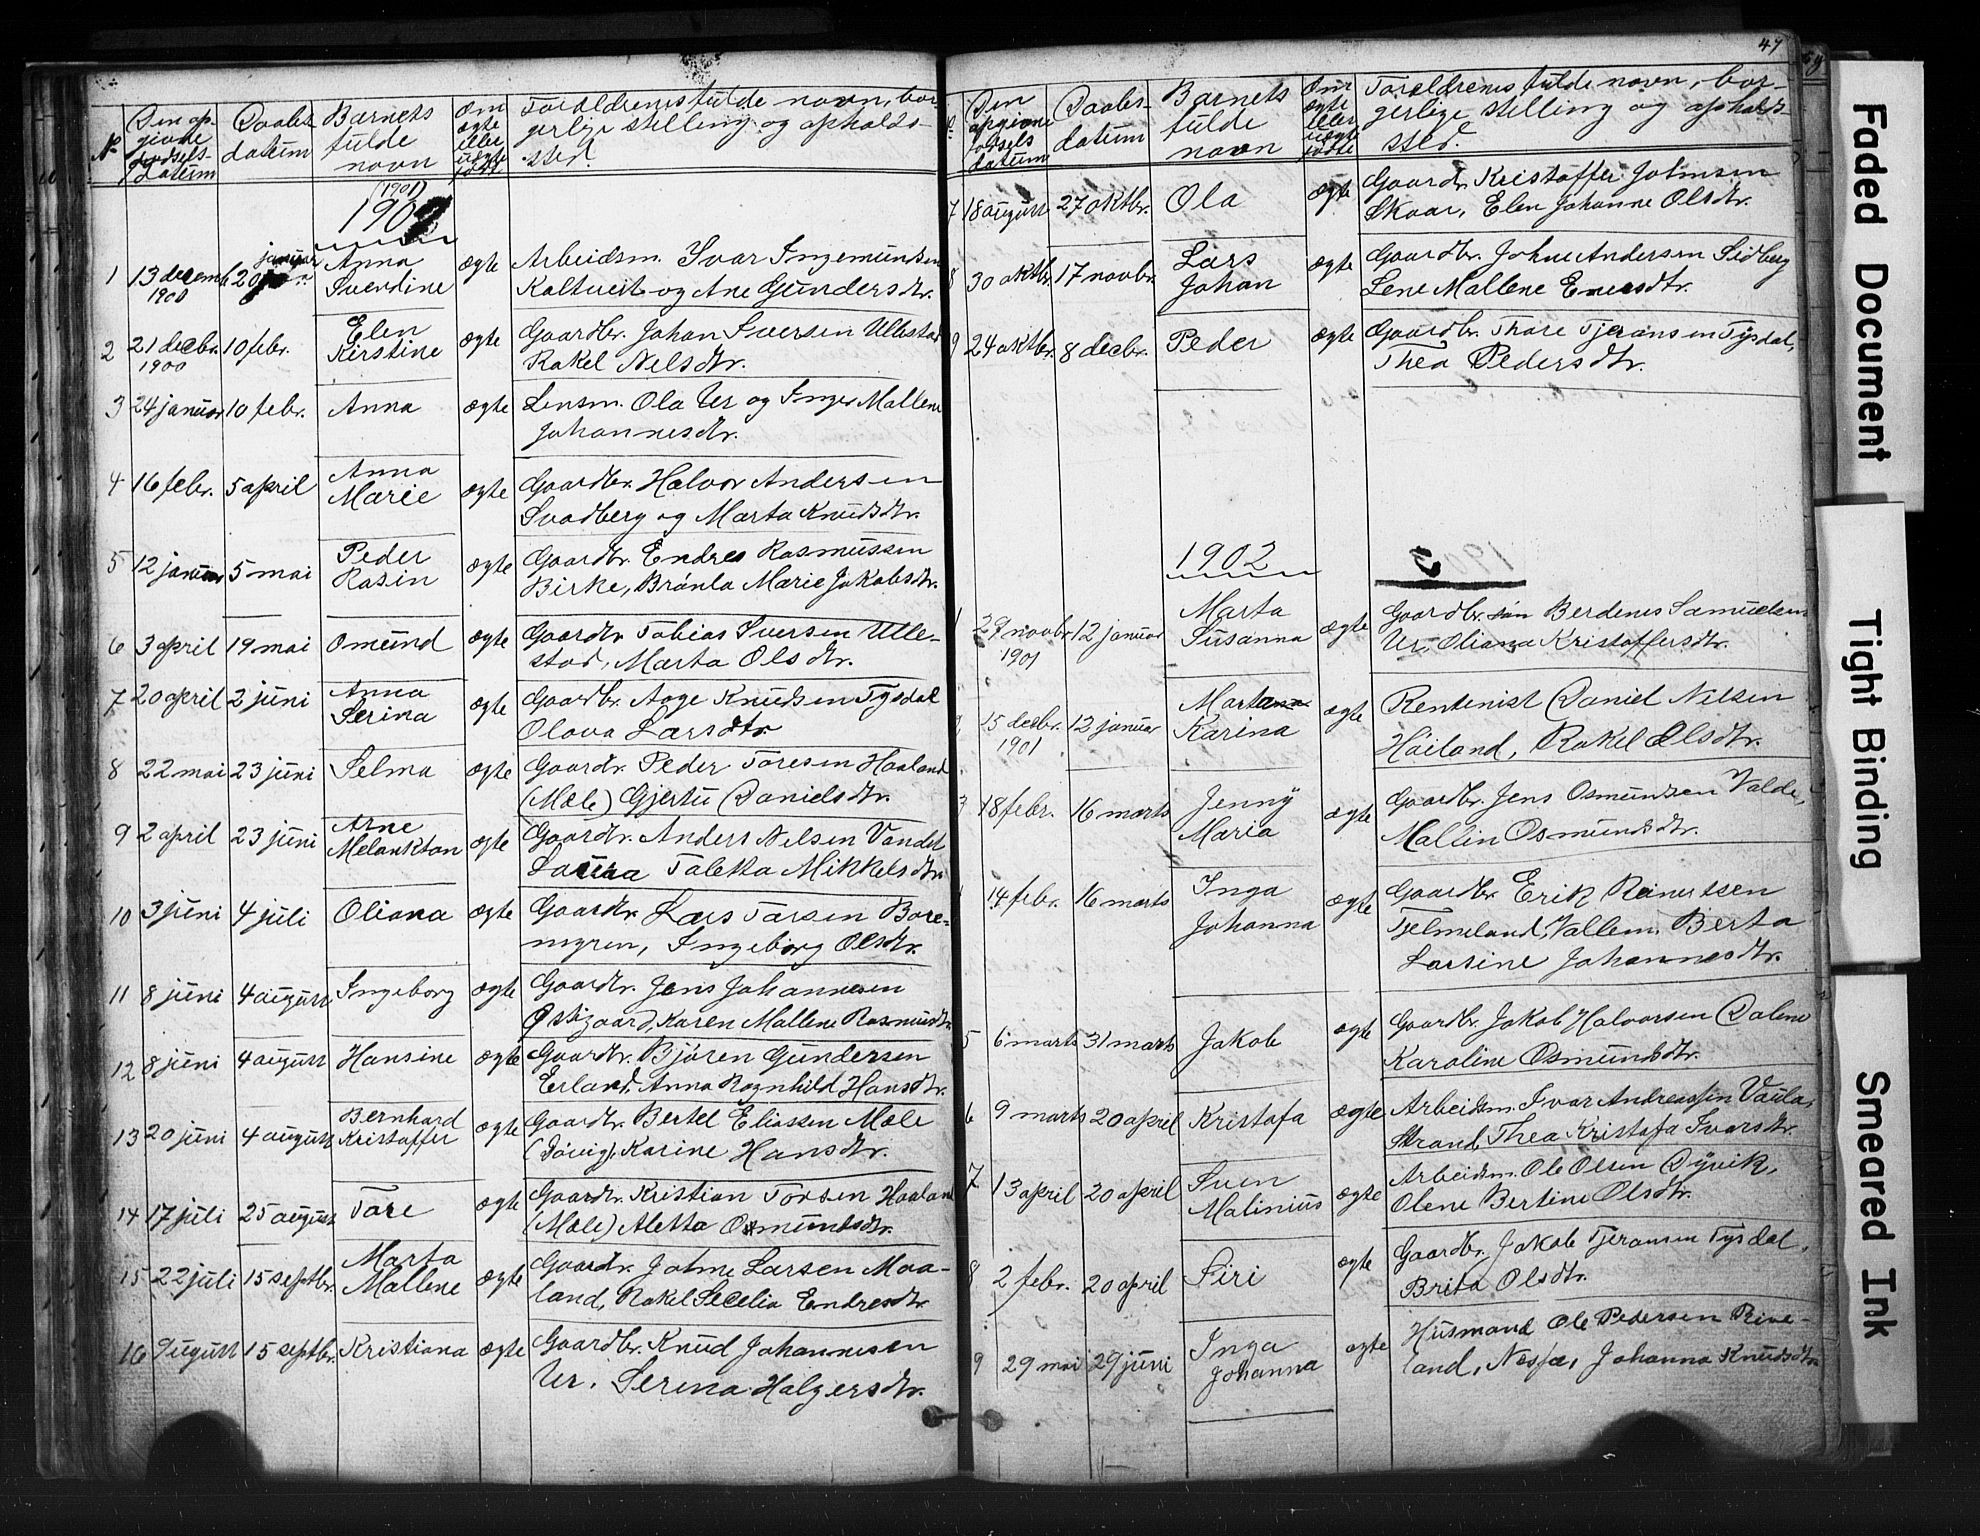 №
Den op-
givne
fødsels-
datum
Daabs-
datum
Barnets
fulde
navn
Om
ægte
eller
uægte
født
Forældrenes fulde navn, bor-
gerlige stilling og opholds-
sted.
(1901)
190
1 13 decemb. 1900 20 januar Anna Sverdine ægte Arbeidsm. Ivar Ingemundsen
Koltveit og Ane Gundersdtr.
2 21 decbr. 1900 10 febr. Elen Kirstine ægte Gaardbr. Johan Iversen Ullestad
Rakel Nelsdtr.
3 24 januar 10 febr. Anna ægte Lensm. Ola Ur og Inger Mallene
Johannesdtr.
4 16 febr. 5 april Anna Marie ægte Gaardbr. Halvor Andersen
Svadberg og Marta Knudsdtr.
5 12 januar 5 mai Peder Rasin ægte Gaardbr. Endres Rasmussen
Birke, Brønla Marie Jakobsdtr.
6 3 april 19 mai Omund ægte Gaardbr Tobias Iversen Ulle-
stad, Marta Olsdtr.
7 20 april 2 juni Anna Serina ægte Gaardbr. Aage Knudsen Tysdal
Olava Larsdtr
8 22 mai 23 juni Selma ægte Gaardbr. Peder Toresen Haaland
(Mæle) Gjertu Danielsdtr.
9 2 april 23 juni Arne Melankton ægte Gaardbr. Anders Nelsen Vandet
Laura Taletta Mikkelsdtr.
10 3 juni 4 juli Oliana ægte Gaardbr. Lars Tarsen Bore-
myren, Ingeborg Olsdtr.
11 8 juni 4 august Ingeborg ægte Gaardbr. Jens Johannesen
Østigaard, Karen Mallene Rasmusdtr.
12 8 juni 4 august Hansine ægte Gaardbr. Bjøren Gundersen
Erland, Anna Ragnhild Hansdtr.
13 20 juni 4 august Bernhard Kristoffer ægte Gaardbr. Bertel Eliassen Mæle
(Døvig), Karine Hansdtr.
14 17 juli 25 august Tore ægte Gaardbr. Kristian Torsen Haaland
(Mæle) Aletta Osmundsdtr.
15 22 juli 15 septbr. Marta Mallene ægte Gaardbr. Johne Larsen Maa-
land, Rakel Secelia Endresdtr.
16 9 august 15 septbr. Kristiana ægte Gaardbr. Knud Johannesen
Ur. Serina Holgersdtr.
47
№
Den
opgivne
fødsels
datum
Daabs-
datum
Barnets
fulde
navn
Om
ægte
eller
uægte
fødte
Forældrenes fulde navn, bor-
gerlige stilling og opholds-
sted.
7 18 august 27 oktbr. Ola ægte Gaardbr. Kristoffer Johnsen
Skaar, Elen Johanne Olsdtr.
8 30 oktbr. 17 novbr. Lars Johan ægte Gaardbr. Johne Andersen Sedberg
Lene Mallene Enersdtr.
9 24 oktbr. 8 decbr. Peder ægte Gaardbr. Thore Tjeransen Tysdal,
Thea Pedersdtr.
1902
1 29 novbr. 1901 12 januar Marta Susanna ægte Gaardbr. søn Berdenes Samuelsen
Ur, Oliana Kristoffersdtr.
2 15 decbr. 1901 12 januar Marta Karina ægte Rentenist Daniel Nelsen
Høiland, Rakel Olsdtr.
3 18 febr. 16 marts Jenny Maria ægte Gaardbr. Jens Osmundsen Valde,
Mallin Osmundsdtr.
4 14 febr. 16 marts Inga Johanna ægte Gaardbr. Erik Reinertsen
Tjelmeland, Vallem. Berta
Larsine Johannesdtr.
5 6 marts 31 marts Jakob ægte Gaardbr. Jakob Halvorsen Dalene
Karoline Osmundsdtr.
6 9 marts 20 april Kristofa ægte Arbeidsm. Ivar Andreassen Vaula,
Strand, Thea Kristofa Ivarsdtr.
7 13 april 20 april Sven Malinius ægte Arbeidsm. Ole Olsen Dyvik,
Olene Bertine Olsdtr.
8 2 febr. 20 april Siri ægte Gaardbr. Jakob Tjeransen Tysdal,
Brita Olsdtr.
9 29 mai 29 juni Inga Johanna ægte Husmand Ole Pedersen Rive-
land, Nesje, Johanna Knudsdtr.
Faded Document
Tight Binding
Smeared Ink